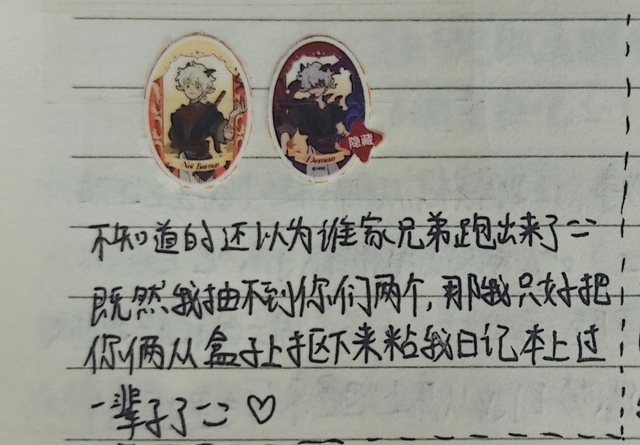 隐藏
Demon
不知道的还以为谁家兄弟跑出来了
既然我抽不到你们两个,那我只好把
你俩从盒子上抠下来粘我日记本上过
一辈子了 ♡